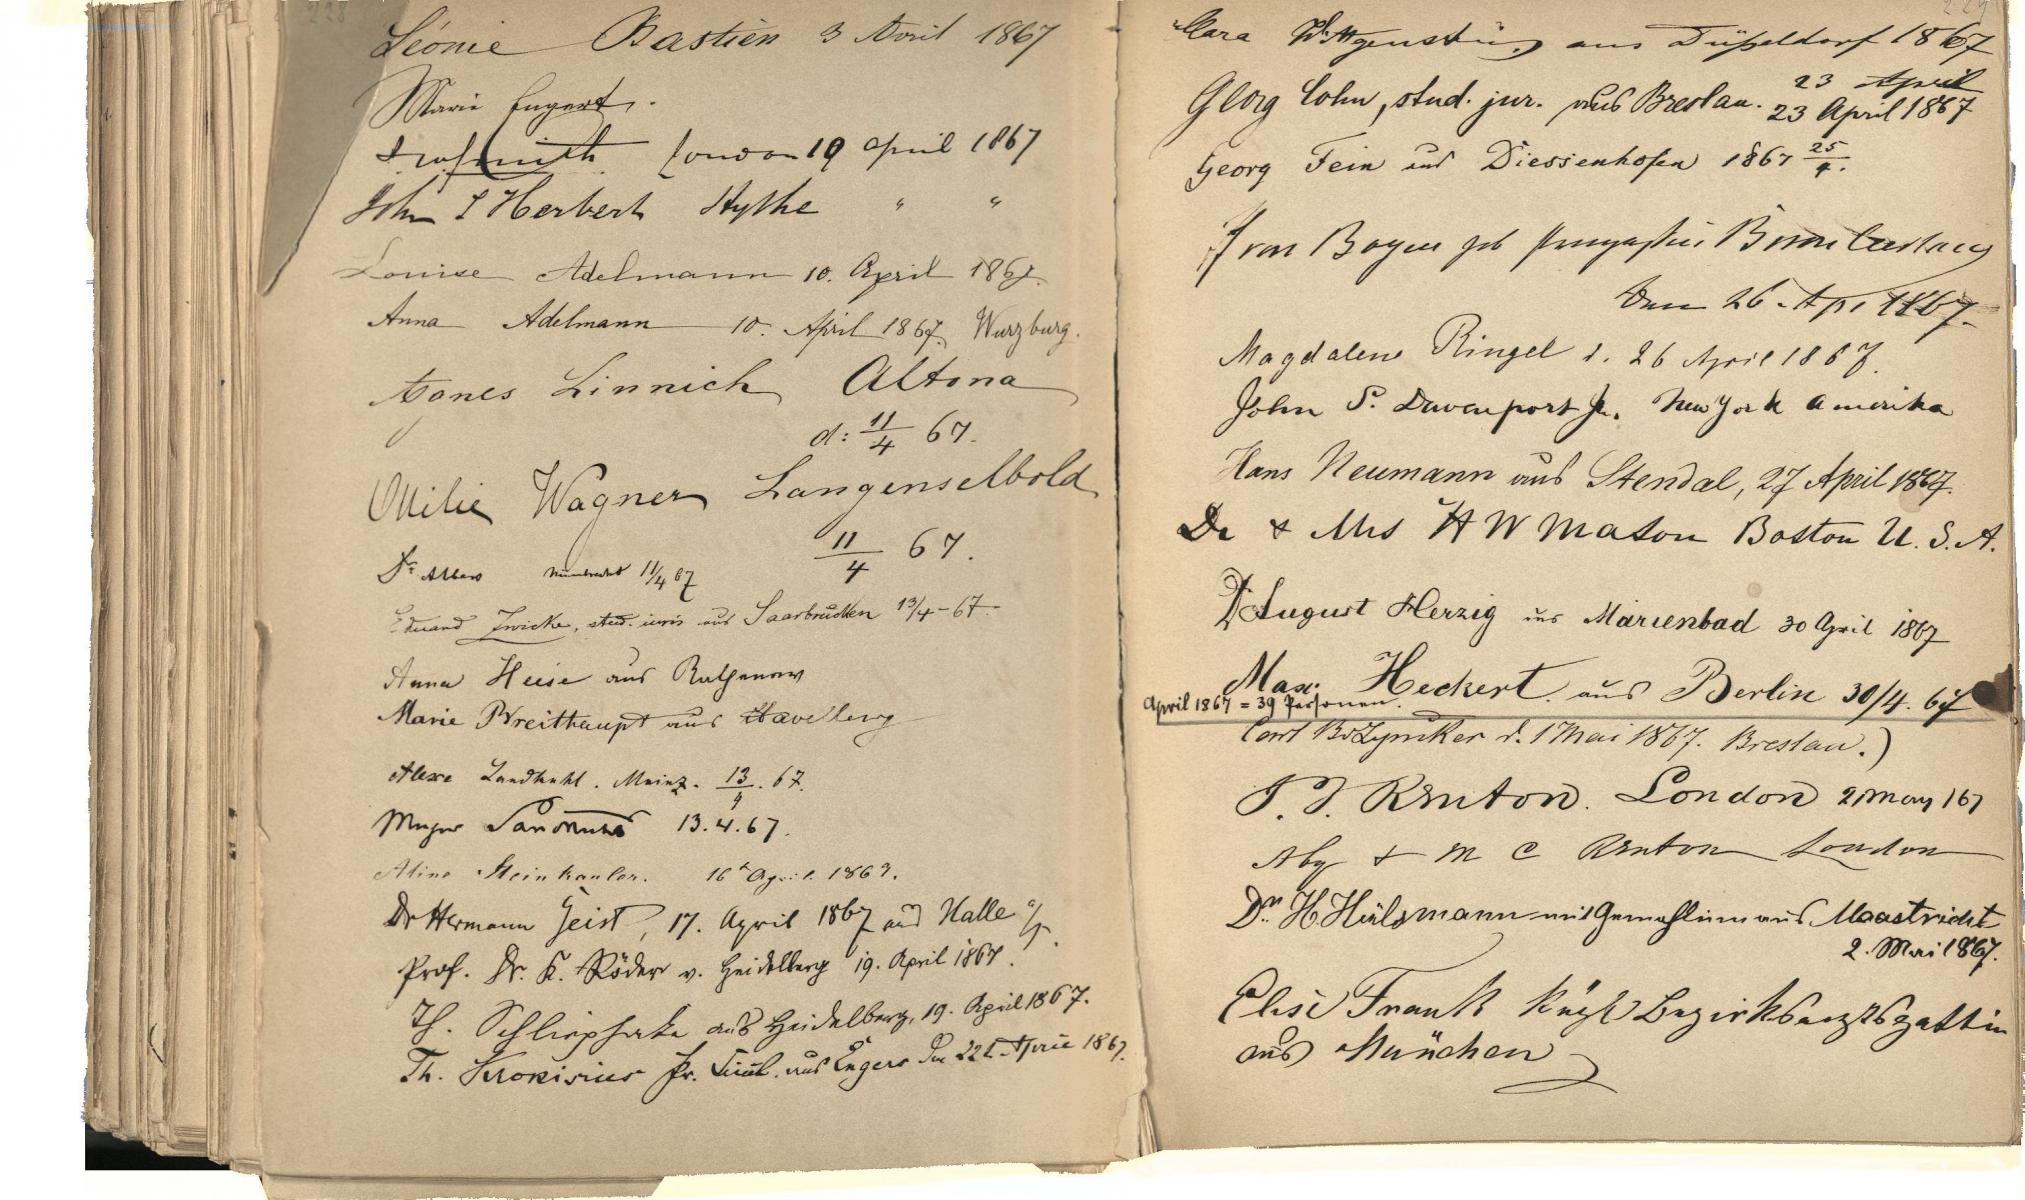 228
Léonie Bastien 3 Avril 1867
Marie
London 19 April 1867
John S Herbert Hythe " "
Louise Adelmann 10. April 1867.
Anna Adelmann 10. April 1867. Wurzburg.
Agnes Linnich Altona
d: 11/4 67.
Ottilie Wagner Langenselbold
11/4 67.
Dr Albers 11/4 67
Eduard Zwicke, stud. iuris aus Saarbrücken 13/4-67.
Anna Heise aus Rathenow
Marie Breithaupt aus Havelberg
Landkuhl. Mainz. 13/4. 67.
13.4.67.
Aline
Dr Hermann Geist, 17. April 1867 aus Halle a/S.
Prof. Dr. K. Röder v. Heidelberg 19. April 1867.
Th. aus Heidelberg, 19. April 1867.
Th. aus Engers 1867.
229
Clara Wittgenstein, aus Düsseldorf 1867
23 April
Georg Cohn, stud. jur. aus Breslau. 23 April 1867
Georg Fein aus Diessenhofen 1867 25/4.
von Boyen geb
Den 26. Apr 1867.
Magdalene Ringel d. 26 April 1867.
John S. Davenport Jr. New York Amerika
Hans Neumann aus Stendal, 27 April 1867.
Dr & Mrs H W Maton Boston U. S. A.
Dr August Herzig aus Marienbad 30 April 1867
Max Heckert aus Berlin 30/4. 67
April 1867 = 39 Personen.
d. 1 Mai 1867. Breslau.)
J. J. Renton. London 2 May /67
& M C Renton London
Dr. H. Hülsmann mit Gemahlin aus Maastricht
2. Mai 1867.
Elise Frank Kügl Bezirksarztsgattin
aus München